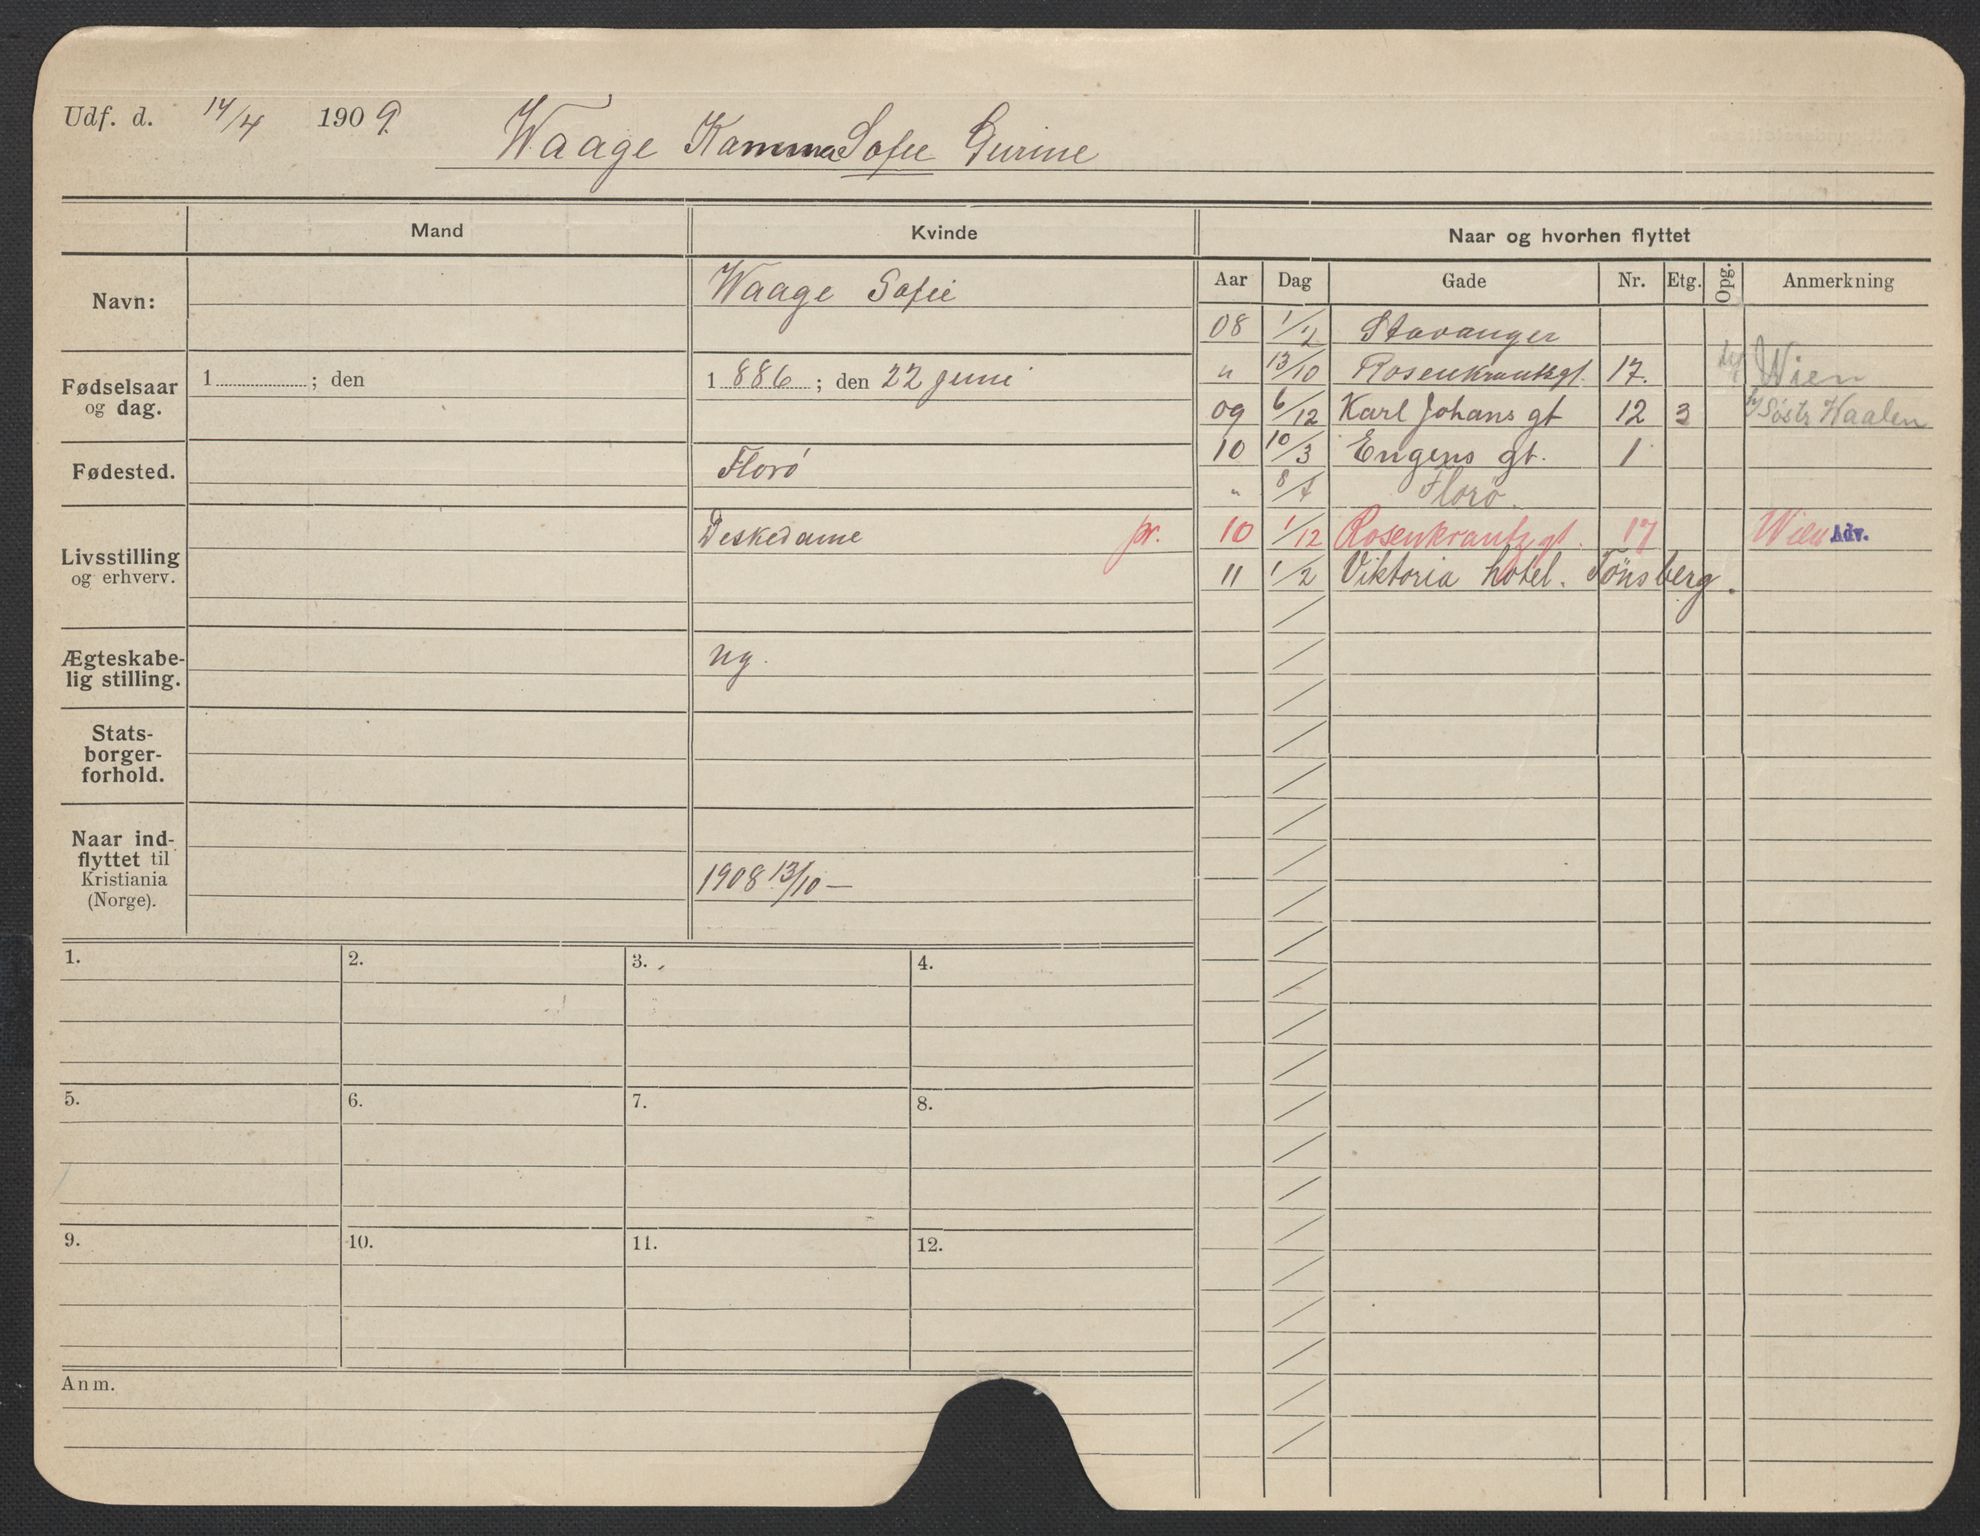 Udf. d. 14/4 1909. Waage Kamma Sofie Gurine
Mand
Kvinde
Naar og hvorhen flyttet
Navn:
Waage Sofie
Fødselsaar
og dag.
1 ; den
1 886 ; den 22 juni
Fødested.
Florø
Livsstilling
og erhverv.
Deskedame pr.
Ægteskabe-
lig stilling.
ug.
Stats-
borger-
forhold.
Naar ind-
flyttet til
Kristiania
(Norge).
1908 13/10 —
Aar Dag Gade Nr. Etg. Opg. Anmerkning
08 1/2 Stavanger
" 13/10 Rosenkrantzgt. 17. Wien
09 6/12 Karl Johans gt 12 3 Søstr Haalen
10 10/3 Engens gt. 1
" 8/7 Florø.
10 1/12 Rosenkrantz gt. 17 Wien Adv.
11 1/2 Viktoria hotel. Tönsberg.
1. 2. 3. 4.
5. 6. 7. 8.
9. 10. 11. 12.
Anm.